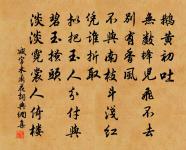 鵝黃初吐
無數蜂兒飛不去
別有香風
不與南枝鬥淺紅
憑誰折取
擬把玉人分付與
碧玉搔頭
淡淡霓裳人倚樓
減字木蘭花